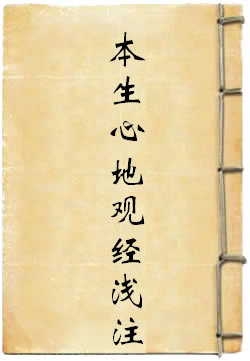 本生心地观经浅注